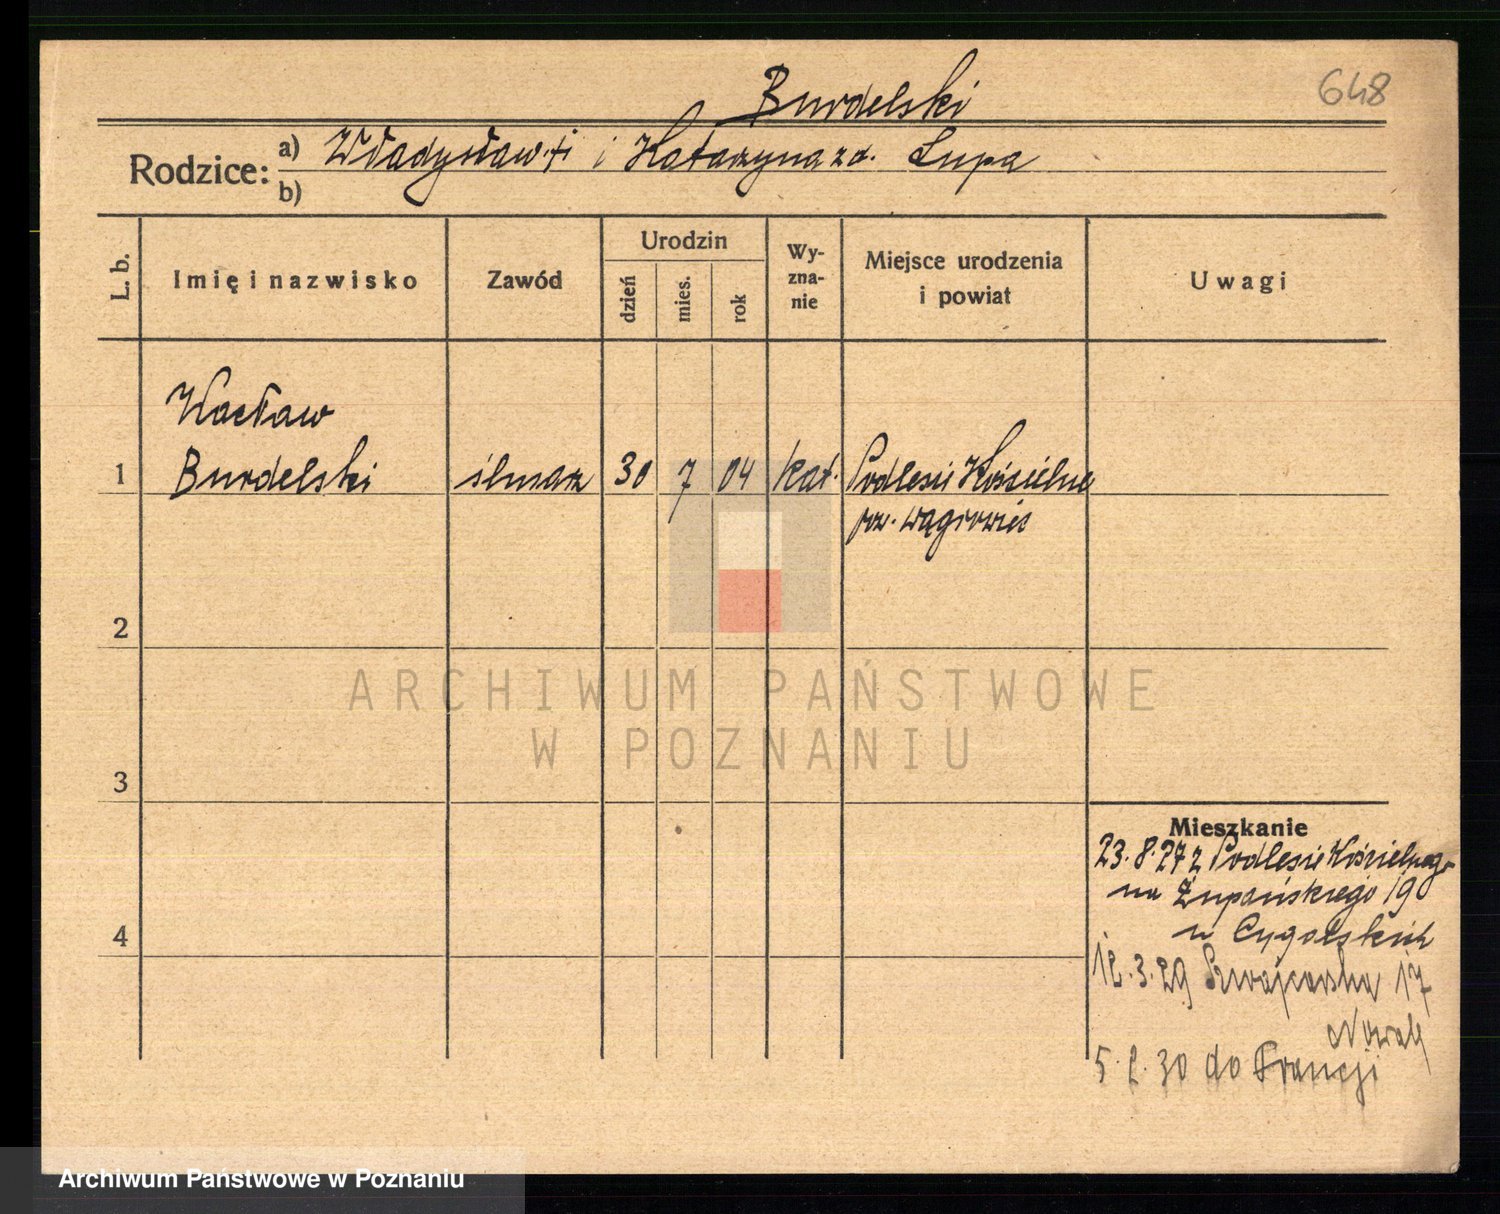 648
Burdelski
Rodzice: a) Władysław + i Katarzyna z d. Lupa
b)
L. b. Imię i nazwisko Zawód Urodzin dzień mies. rok Wy-zna-nie Miejsce urodzenia i powiat Uwagi
Wacław
1 Burdelski ślusarz 30 7 04 kat. Podlesie Kościelne
pow. Wągrowiec
2
3
4
Mieszkanie
23.8.27 z Podlesie Kościelnego
na Żupańskiego 19
u Cygańskich
12.3.29 Szwajcarska 17
Nowak
5. 2. 30 do Francji
ARCHIWUM PAŃSTWOWE
W POZNANIU
Archiwum Państwowe w Poznaniu